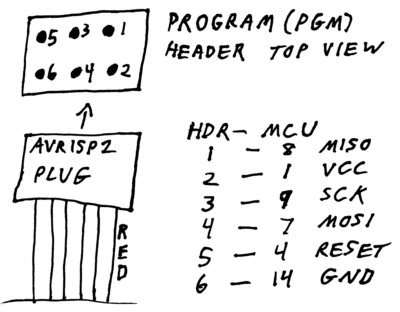 PROGRAM (PGM)
HEADER TOP VIEW
5 3 1
6 4 2
AVRISP2
PLUG
RED
HDR - MCU
1 - 8 MISO
2 - 1 VCC
3 - 9 SCK
4 - 7 MOSI
5 - 4 RESET
6 - 14 GND